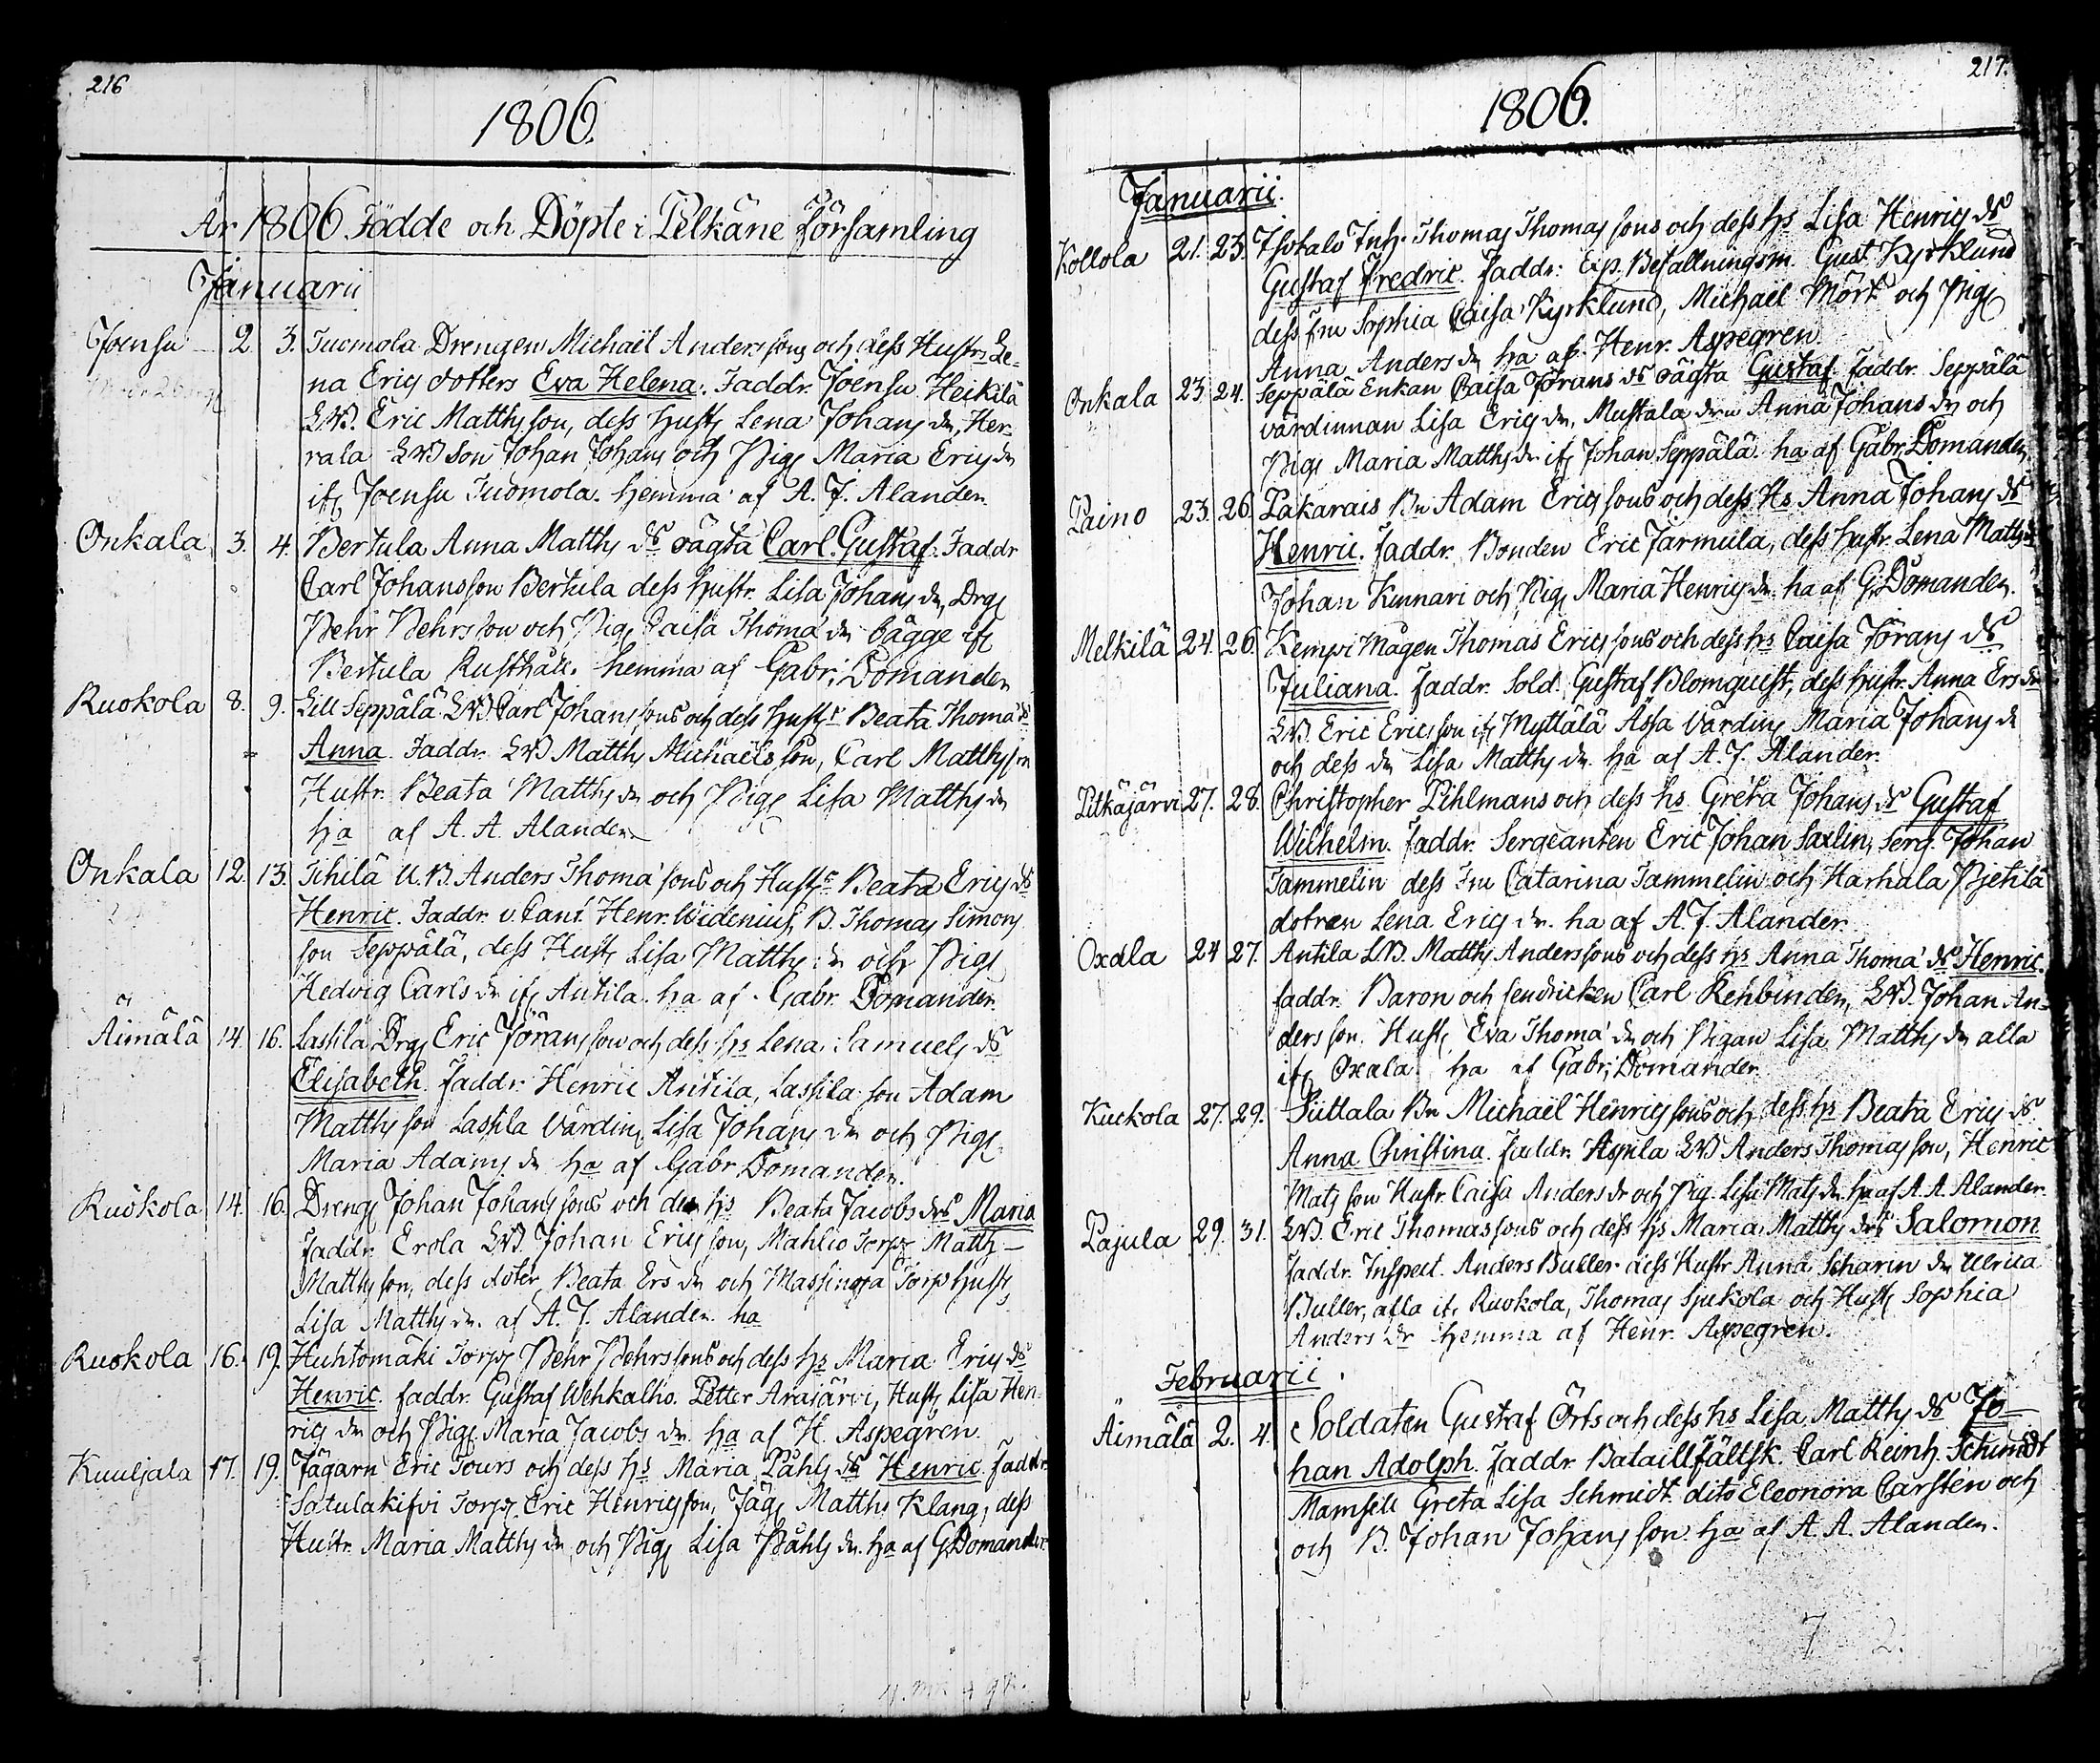 216
1806.
År 1806 Födde och Döpte i Pelkäne Församling
Januarii
Joensu 2. 3. Tuomola Drengen Michaël Anderssons och dess Hustrs Le-
na Ericsdotters Eva Helena. Faddr. Joensu Heikilä
LB. Eric Matthsson, dess hust. Lena Johansdr, Her-
rala LB son Johan Johans och Pig. Maria Ericsdr
ifr. Joensu Tuomola. hemma af A. J. Alander.
Onkala 3. 4. Bertula Anna Matthsds oägta Carl Gustaf. Faddr
Carl Johansson Bertula dess hustr. Lisa Johansdr, Drg.
Pehr Pehrsson och Pig. Caisa Thomædr bägge ifr.
Bertula Rusthåll. hemma af Gabr. Domander
Ruokola 8. 9. Lill Seppälä LB Carl Johanssons och dess Hustrs Beata Thomæds
Anna Faddr. LB Matths Michaelsson, Carl Matthsson
Hustr. Beata Matthsdr och Pig. Lisa Matthsdr
ha af A. A. Alander
Onkala 12. 13. Tihilä U.B. Anders Thomæsons och Hustrs Beata Ericsds
Henric. Faddr. v. Cant. Henr. Widenius, B. Thomas Simons
son Seppälä, dess Hust. Lisa Matthsdr och Pig.
Hedvig Carlsdr ifr. Antila. ha af Gabr. Domander.
Äimälä 14. 16. Lassila Drg. Eric Göransson och dess hs Lena Samuelsds
Elisabeth. Faddr. Henric Antila, Lassila son Adam
Matthsson Lassila Värdin. Lisa Johansdr och Pig.
Maria Adamsdr ha af Gabr Domander.
Ruokola 14. 16. Dreng. Johan Johanssons och dess hs Beata Jacobsdrs Maria
Faddr. Erola LB. Johan Ericsson, Mahlio Torp. Matths
Matthsson, dess doter Beata Ersdr och Massinoja Torp hust.
Lisa Matthsdr. af A. J. Alander ha
Ruokola 16. 19. Huhtomäki Torp. Pehr Pehrssons och dess hs Maria Ericsds
Henric. Faddr. Gustaf Wehkalho. Petter Arajärvi, Hust. Lisa Hen-
ricsdr och Pig. Maria Jacobsdr. ha af H. Aspegren.
Kuuljala 17. 19. Jägarn Eric Tours och dess hs Maria Påhlsds Henric. Faddr.
Satulakifvi Torp. Eric Henricsson, Jäg. Matths Klang, dess
Hustr. Maria Matthsdr och Pig. Lisa Påhlsdr. ha af G. Domander
217.
1806.
Januarii.
Kollola 21. 23. Isotalo Inh. Thomas Thomassons och dess hs Lisa Henricsds
Gustaf Fredric. Faddr: Exp. Befallningsm. Gust. Kyrklund
dess fru Sophia Caisa Kyrklund, Michael Mört och Pig.
Anna Andersdr ha af Henr. Aspegren.
Onkala 23. 24. Seppälä Enkan Caisa Göransds oägta Gustaf. Faddr. Seppälä
värdinnan Lisa Ericsdr, Mustala drn Anna Johansdr och
Pig. Maria Matthsdr ifr. Johan Seppälä. ha af Gabr. Domander
Paino 23. 26. Pakarais Bn Adam Ericssons och dess Hs Anna Johansds
Henric. Faddr. Bonden Eric Jarmula, dess hustr. Lena Matthsdr
Johan Kinnari och Pig. Maria Henricsdr. ha af G. Domander.
Melkilä 24. 26. Kempi Mågen Thomas Ericssons och dess hs Caisa Göransds
Juliana. Faddr. Sold. Gustaf Blomquist, dess hustr. Anna Ersdr
LB. Eric Ericsson ifr. Myttälä Assa Värdin. Maria Johansdr
och dess dr Lisa Matthsdr. ha af A. J. Alander.
Pitkäjärvi 27. 28. Christopher Pihlmans och dess hs. Greta Johansds Gustaf
Wilhelm. Faddr. Sergeanten Eric Johan Saxlin, Serg. Johan
Tammelin dess Fru Catarina Tammelin och Harhala Pjetilä
dotren Lena Ericsdr. ha af A. J. Alander.
Oxala 24 27. Antila LB. Matths Anderssons och dess hs Anna Thomæds Henric.
faddr. Baron och fendricken Carl Rehbinder, LB. Johan An-
dersson. Hust. Eva Thomædr och Pigan Lisa Matthsdr alla
ifr. Oxala. ha af Gabr. Domander.
Kuckola 27. 29. Sittala Bn Michaël Henricssons och dess hs Beata Ericsds
Anna Christina. Faddr. Anila LB Anders Thomasson, Henric
Mats son Hustr. Caisa Andersdr och Pig. Lisa Matsdr. ha af A. A. Alander.
Pajula 29. 31. LB. Eric Thomassons och dess hs Maria Matthsdrs Salomon
Faddr. Inspect. Anders Buller dess Hustr Anna Scharin dr Ulrica
Buller, alla ifr. Ruokola, Thomas Sjukola och Hust. Sophia
Andersdr hemma af Henr. Aspegren.
Februarii.
Äimälä 2. 4. Soldaten Gustaf Örts och dess hs Lisa Matthsds Jo-
han Adolph. Faddr. Bataill Fältsk. Carl Reinh. Schmidt
Mamsell Greta Lisa Schmidt dito Eleonora Carsten och
och B. Johan Johansson ha af A. A. Alander.
7 2.